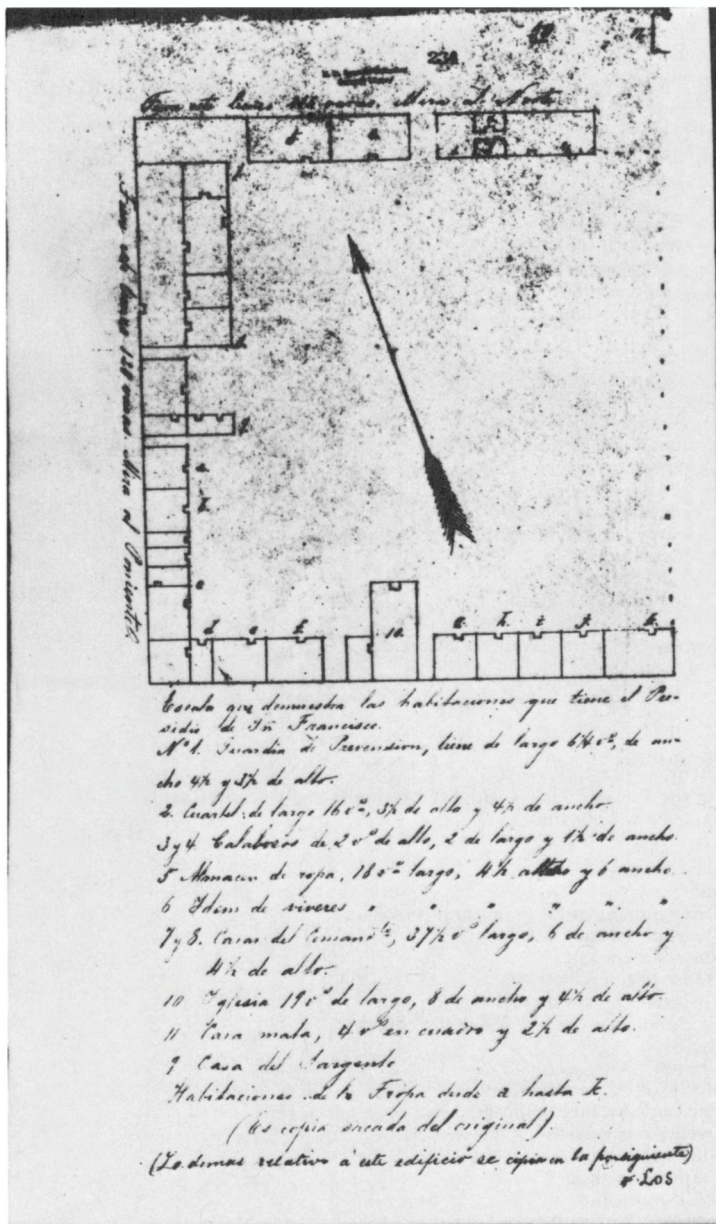 234
Tiene este lienzo varas. Mira al Norte
Tiene este lienzo 138 varas. Mira al Poniente
10
Escala que demuestra las habitaciones que tiene el Pre-
sidio de Sn Francisco.
No 1. Guardia de Prevension, tiene de largo 6¼ vs, de an-
cho 4½ y 3½ de alto.
2. Cuartel: de largo 16 vs, 3½ de alto y 4½ de ancho.
3 y 4 Calabosos de 2 vs de alto, 2 de largo y 1½ de ancho.
5 Almacen de ropa, 18 vs largo, 4½ alto y 6 ancho
6 Idem de viveres " " " " " "
7 y 8. Casas del Comandte, 37½ vs largo, 6 de ancho y
4½ de alto.
10 Yglesia 19 vs de largo, 8 de ancho y 4½ de alto.
11 Casa mata, 4 vs en cuadro y 2½ de alto.
9 Casa del Sargento
Habitaciones de la Tropa desde a hasta k.
(Es copia sacada del original).
(Lo demas relativo á este edificio se copia en la foja siguiente)